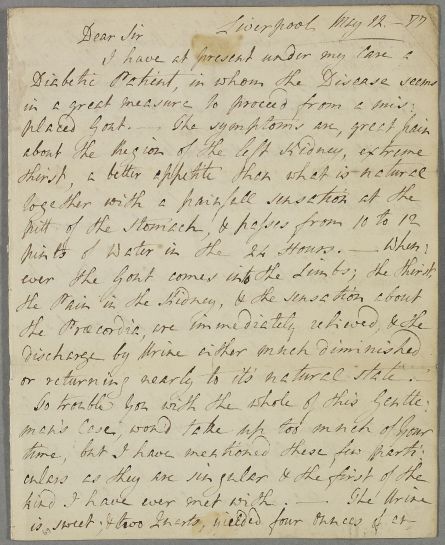 Liverpool May 12. - 87
Dear Sir
I have at present under my Care a
Diabetic Patient, in whom the Disease seems
in a great measure to proceed from a mis:
placed Gout. — The symptoms are, great pain
about the Region of the left Kidney, extreme
thirst, a better appetite than what is natural
together with a painfull sensation at the
pitt of the Stomach, & passes from 10 to 12
pints of Water in the 24 Hours. — When:
ever the Gout comes into the Limbs; the thirst,
the Pain in the Kidney, & the sensation about
the Præcordia, are immediately relieved, & the
discharge by Urine either much diminished
or returning nearly to it's natural state. —
To trouble You with the whole of this Gentle:
man's Case, wou'd take up too much of Your
time, but I have mentioned these few parti:
culars as they are singular & the first of the
kind I have ever met with. — The Urine
is sweet, & two Quarts, yielded four Ounces & an